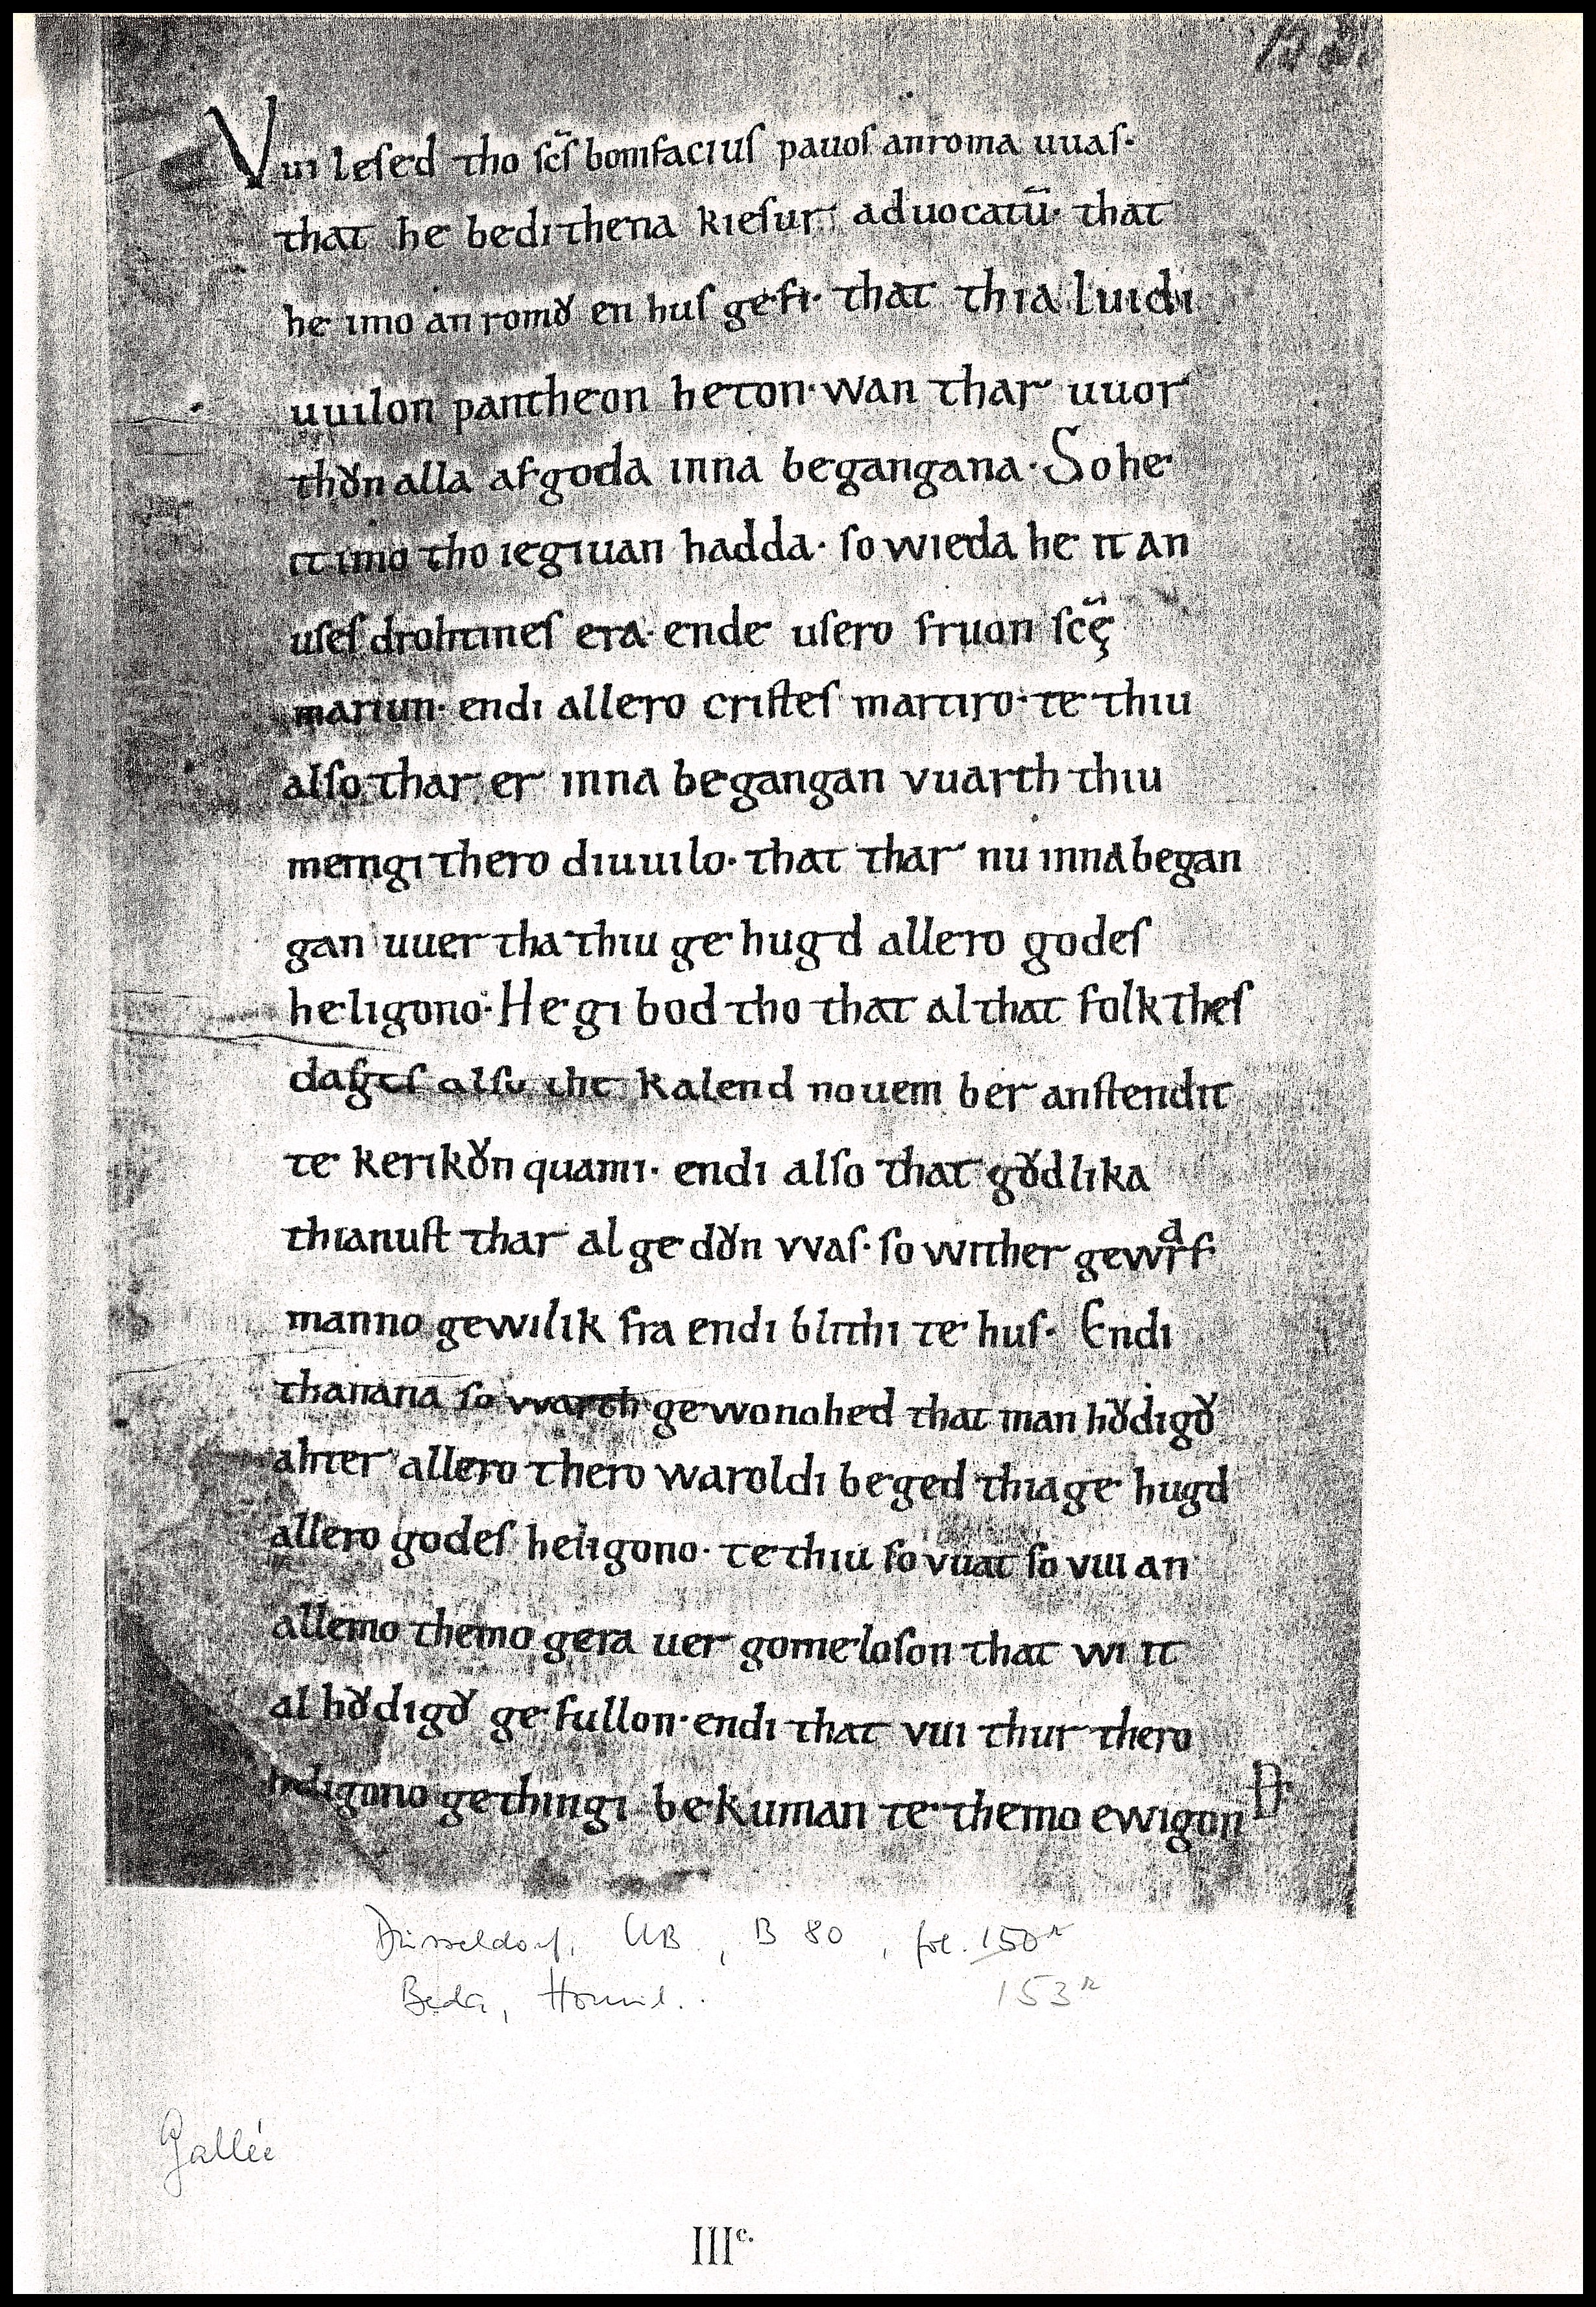 Vui leſed tho ſc̄ſ bonifaciuſ pauoſ an roma uuaſ·
that he bedi thena kieſur· aduocatū· that
he imo an romo᷑ en huſ gefi· that thia luidi
uuilon pantheon heton· wan thar uuor
tho᷑n alla afgoda inna begangana· So he
it imo tho iegiuan hadda· ſo wieda he it an
uſeſ drohtineſ era· ende uſero fruon ſc̄ę
mariun· endi allero criſteſ martiro· te thiu
alſo thar er inna begangan vuarth thiu
menigi thero diuuilo· that thar nu inna began
gan uuertha thiu gehugd allero godeſ
heligono· He gibod tho that al that folk theſ
dageſ alſo the kalend nouember anſtendit
te keriko᷑n quami· endi alſo that go᷑dlika
thianuſt thar al gedo᷑n vvaſ· ſo wither gewarf
manno gewilik fra endi blithi te huſ· Endi
thanana ſo vvarth gewonohed that man ho᷑digo᷑
ahter allero thero waroldi beged thia gehugd
allero godeſ heligono· te thiu ſo vuat ſo vui an
allemo themo gera uergomeloſon that wi it
al ho᷑digo᷑ gefullon· endi that vui thur thero
heligono gethingi bekuman te themo ewigon
Düsseldorf, UB, B 80, fol. 150r
Beda, Homil. 153r
Gallée
IIIc.